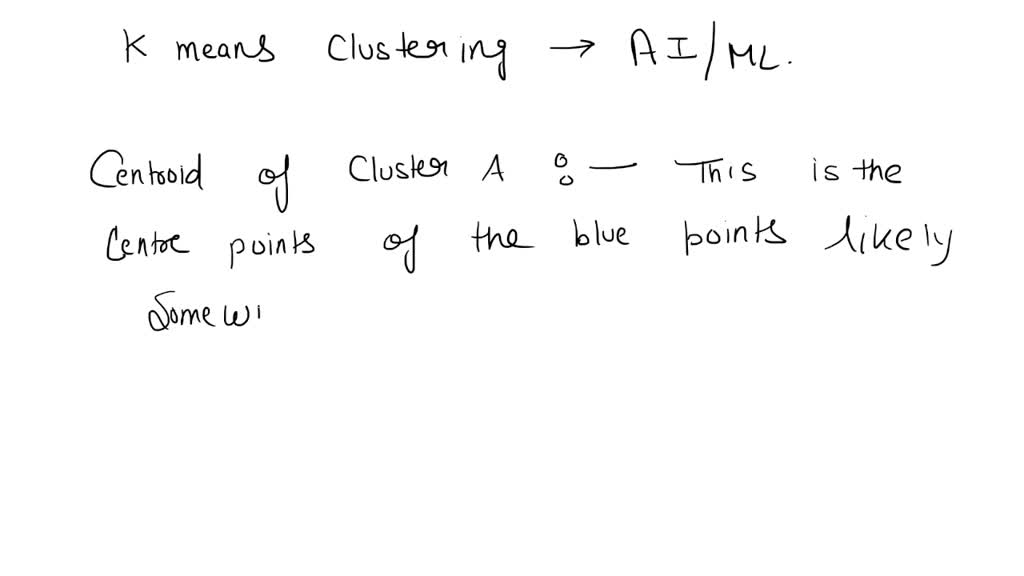 K means Clustering → AI/ML.
Centroid of Cluster A :— This is the
Centre points of the blue points likely
Some wi